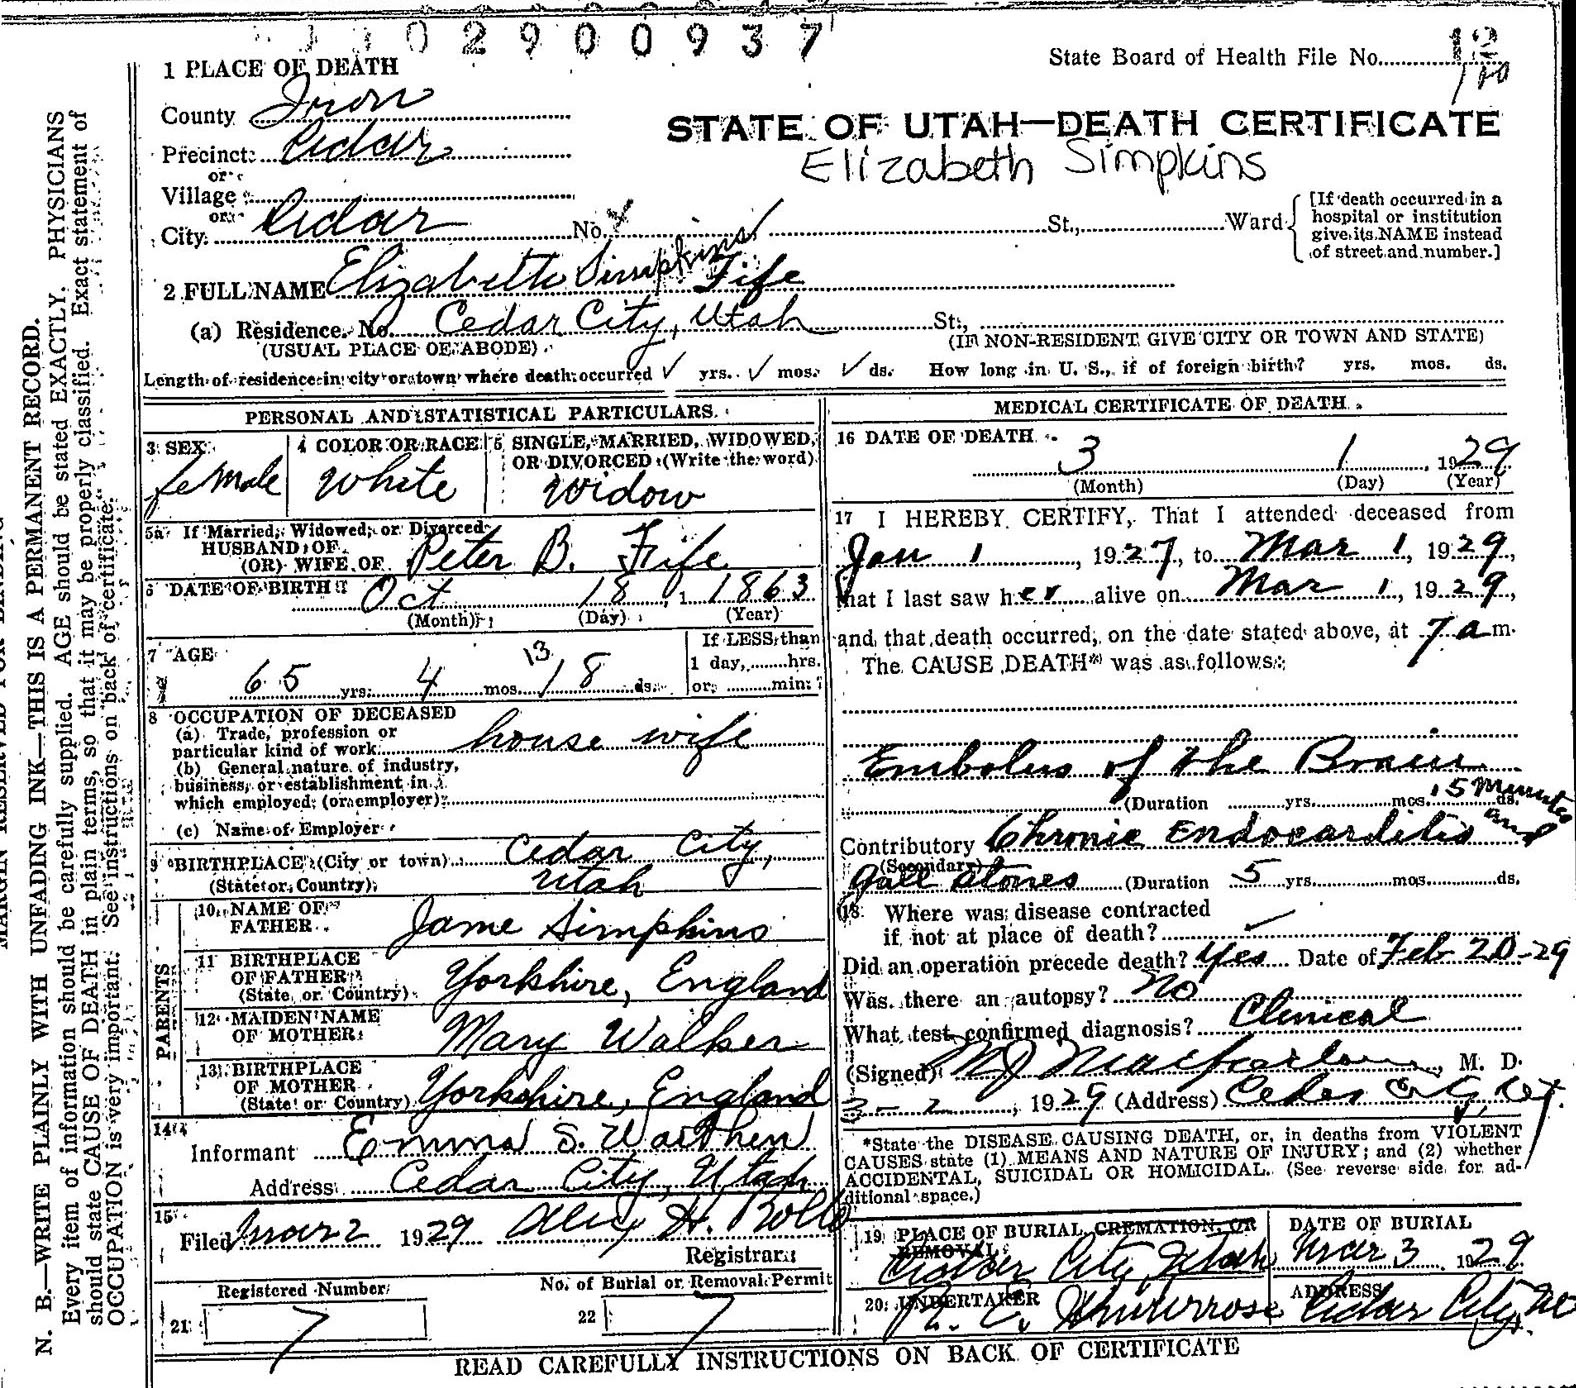 02900937
State Board of Health File No. 12
1 PLACE OF DEATH
County Iron
STATE OF UTAH—DEATH CERTIFICATE
Precinct Cedar
Elizabeth Simpkins
or
Village
or
City Cedar No. St., Ward
[If death occurred in a
hospital or institution
give its NAME instead
of street and number.]
2 FULL NAME Elizabeth Simpkins Fife
(a) Residence. No. Cedar City, Utah St.,
(USUAL PLACE OF ABODE) (IF NON-RESIDENT GIVE CITY OR TOWN AND STATE)
Length of residence in city or town where death occurred ✓ yrs. ✓ mos. ✓ ds. How long in U. S., if of foreign birth? yrs. mos. ds.
PERSONAL AND STATISTICAL PARTICULARS.
3 SEX 4 COLOR OR RACE 5 SINGLE, MARRIED, WIDOWED,
OR DIVORCED (Write the word)
female White Widow
5a If Married, Widowed, or Divorced
HUSBAND OF
(OR) WIFE OF Peter B. Fife
6 DATE OF BIRTH Oct 18, 1 1863
(Month) (Day) (Year)
7 AGE If LESS than
13 1 day, hrs.
65 yrs. 4 mos. 18 ds. or min.
8 OCCUPATION OF DECEASED
(a) Trade, profession or
particular kind of work house wife
(b) General nature of industry,
business, or establishment in
which employed (or employer)
(c) Name of Employer
9 BIRTHPLACE (City or town) Cedar City,
(State or Country) Utah
PARENTS
10 NAME OF
FATHER Jame Simpkins
11 BIRTHPLACE
OF FATHER
(State or Country) Yorkshire, England
12 MAIDEN NAME
OF MOTHER Mary Walker
13 BIRTHPLACE
OF MOTHER
(State or Country) Yorkshire, England
14
Informant Emma S. Warthen
Address Cedar City, Utah
15
Filed Mar 2 1929 H. Rollo
Registrar
Registered Number No. of Burial or Removal Permit
21 7 22 7
MEDICAL CERTIFICATE OF DEATH
16 DATE OF DEATH
3 1, 1929
(Month) (Day) (Year)
17 I HEREBY CERTIFY, That I attended deceased from
Jan 1, 1927, to Mar 1, 1929,
that I last saw her alive on Mar 1, 1929,
and that death occurred, on the date stated above, at 7 a m.
The CAUSE DEATH* was as follows:
Embolus of the Brain
(Duration yrs. mos. 15 Minutes ds.
Contributory Chronic Endocarditis and
(Secondary)
Gall Stones (Duration 5 yrs. mos. ds.
18 Where was disease contracted
if not at place of death?
Did an operation precede death? Yes Date of Feb 20-29
Was there an autopsy? No
What test confirmed diagnosis? Clinical
(Signed) M J Macfarlane, M. D.
3-2, 1929 (Address) Cedar City, Ut.
*State the DISEASE CAUSING DEATH, or, in deaths from VIOLENT
CAUSES state (1) MEANS AND NATURE OF INJURY; and (2) whether
ACCIDENTAL, SUICIDAL OR HOMICIDAL. (See reverse side for ad-
ditional space.)
19 PLACE OF BURIAL, CREMATION, OR
REMOVAL DATE OF BURIAL
Cedar City, Utah Mar 3 1929
20 UNDERTAKER ADDRESS
Cedar City,
READ CAREFULLY INSTRUCTIONS ON BACK OF CERTIFICATE
N. B.—WRITE PLAINLY WITH UNFADING INK—THIS IS A PERMANENT RECORD.
Every item of information should be carefully supplied. AGE should be stated EXACTLY. PHYSICIANS
should state CAUSE OF DEATH in plain terms, so that it may be properly classified. Exact statement of
OCCUPATION is very important. See instructions on back of certificate.